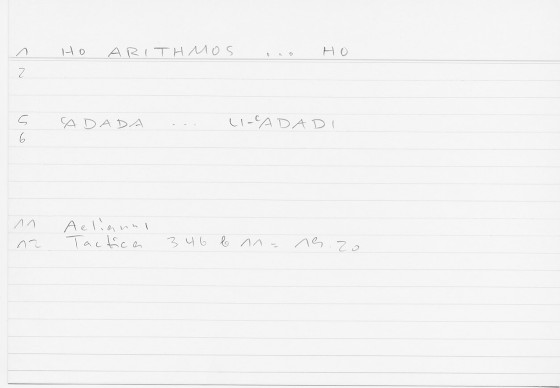 1 HO ARITHMOS ... HO
2
5 ʿADADA ... LI-ʿADADI
6
11 Aelianus
12 Tactica 346 b 11 = 19 20